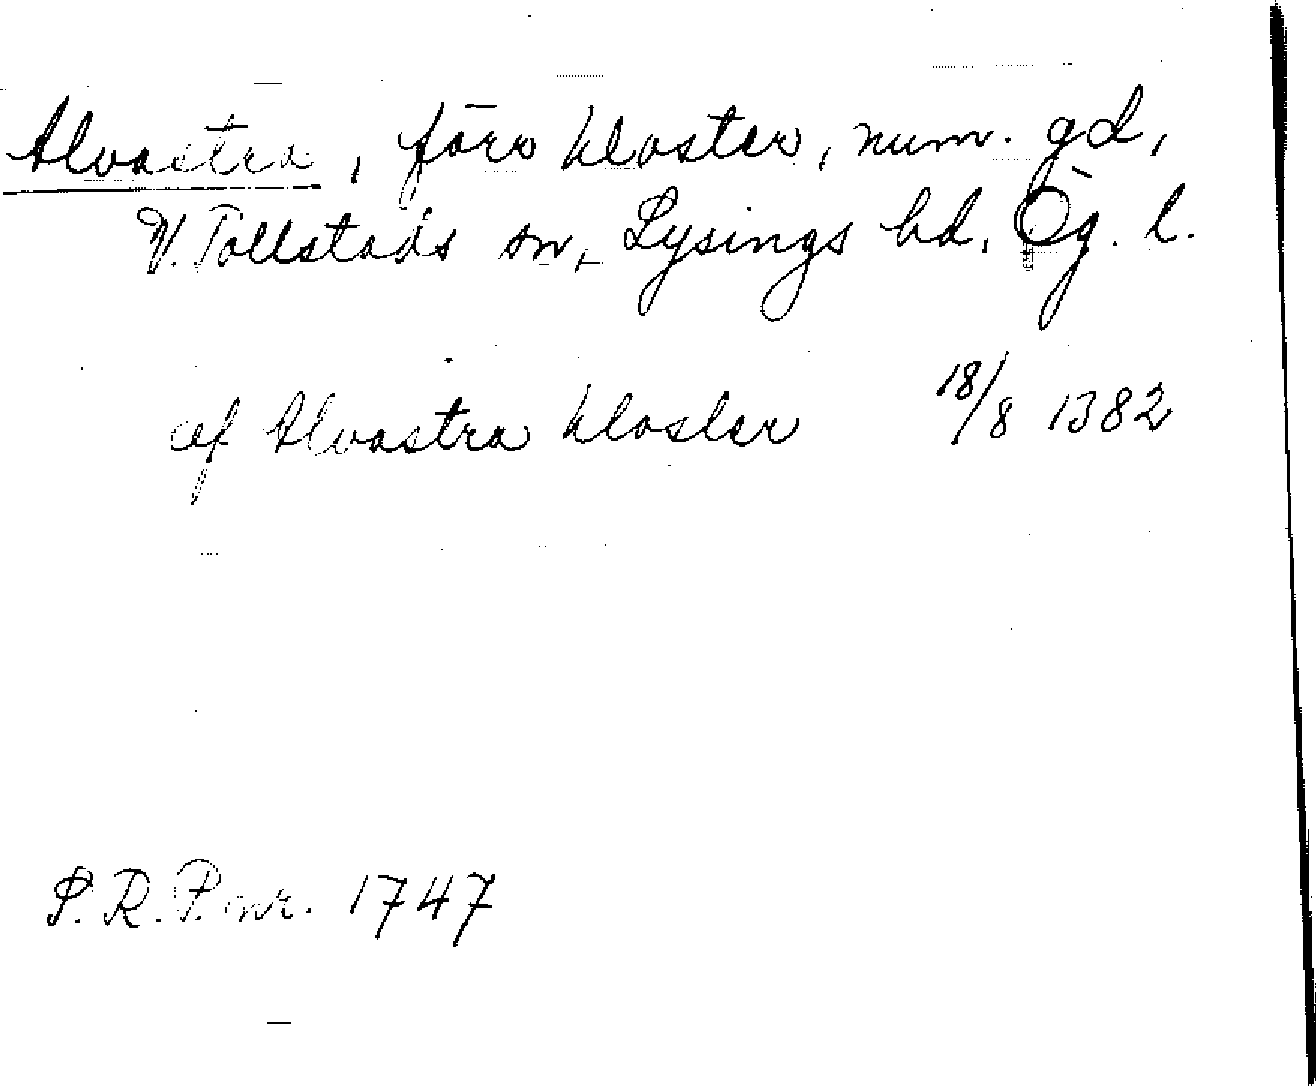 Alvastra, förr kloster, num. gd,
V. Tollstads sn, Lysings hd. Ög. l.
af Alvastra kloster 18/8 1382
S. R. P. nr. 1747